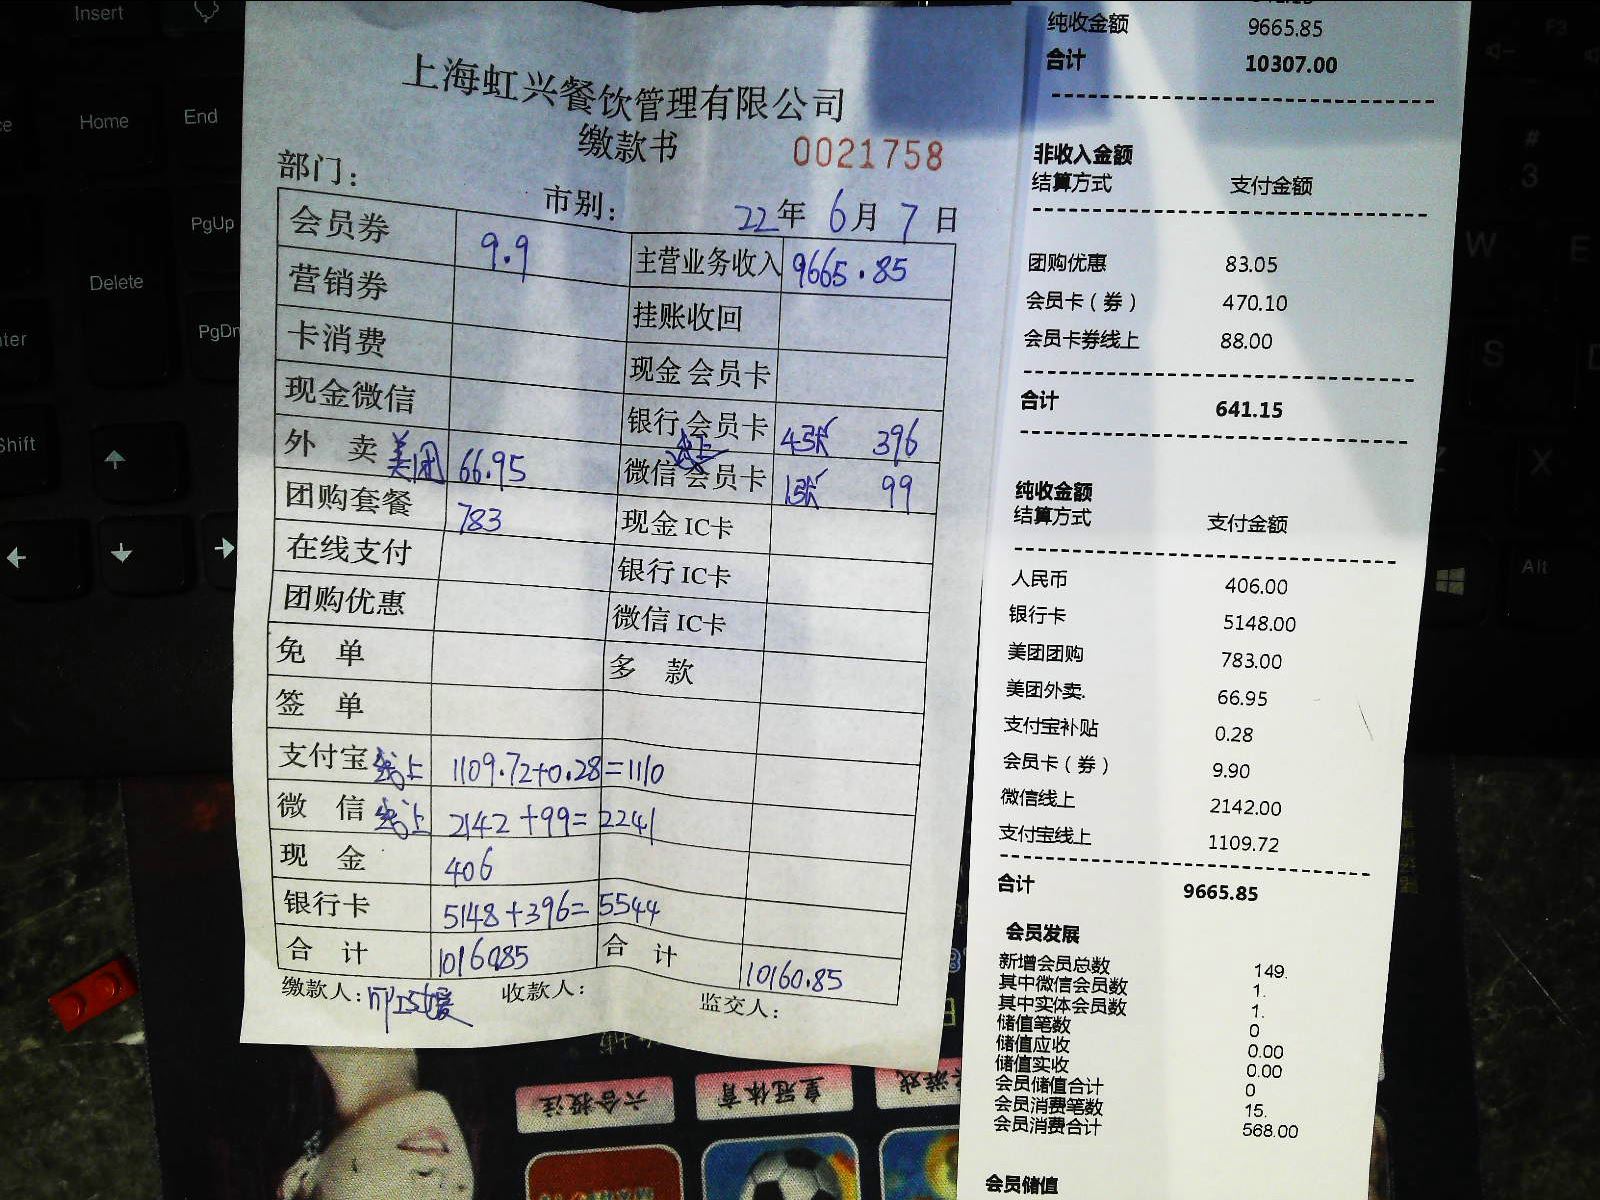 上海虹兴餐饮管理有限公司
缴款书
0021758
部门：
市别：
22年 6月 7日
会员券 9.9 主营业务收入 9665.85
营销券 挂账收回
卡消费 现金 会员卡
现金微信 银行 会员卡 4张 396
外 卖 美团 66.95 微信 会员卡 1张 99
团购套餐 783 现金 IC卡
在线支付 银行 IC卡
团购优惠 微信 IC卡
免 单 多 款
签 单
支付宝 线上 1109.72+0.28=1110
微 信 线上 2142+99=2241
现 金 406
银行卡 5148+396=5544
合 计 10160.85 合 计 10160.85
缴款人： 收款人： 监交人：
纯收金额 9665.85
合计 10307.00
非收入金额
结算方式 支付金额
团购优惠 83.05
会员卡（券） 470.10
会员卡券线上 88.00
合计 641.15
纯收金额
结算方式 支付金额
人民币 406.00
银行卡 5148.00
美团团购 783.00
美团外卖. 66.95
支付宝补贴 0.28
会员卡（券） 9.90
微信线上 2142.00
支付宝线上 1109.72
合计 9665.85
会员发展
新增会员总数 149.
其中微信会员数 1.
其中实体会员数 1.
储值笔数 0
储值应收 0.00
储值实收 0.00
会员储值合计 0
会员消费笔数 15.
会员消费合计 568.00
会员储值
Insert
Home
End
PgUp
Delete
PgDn
Shift
F3
#
3
W
E
S
X
Alt
六合投注
皇冠体育